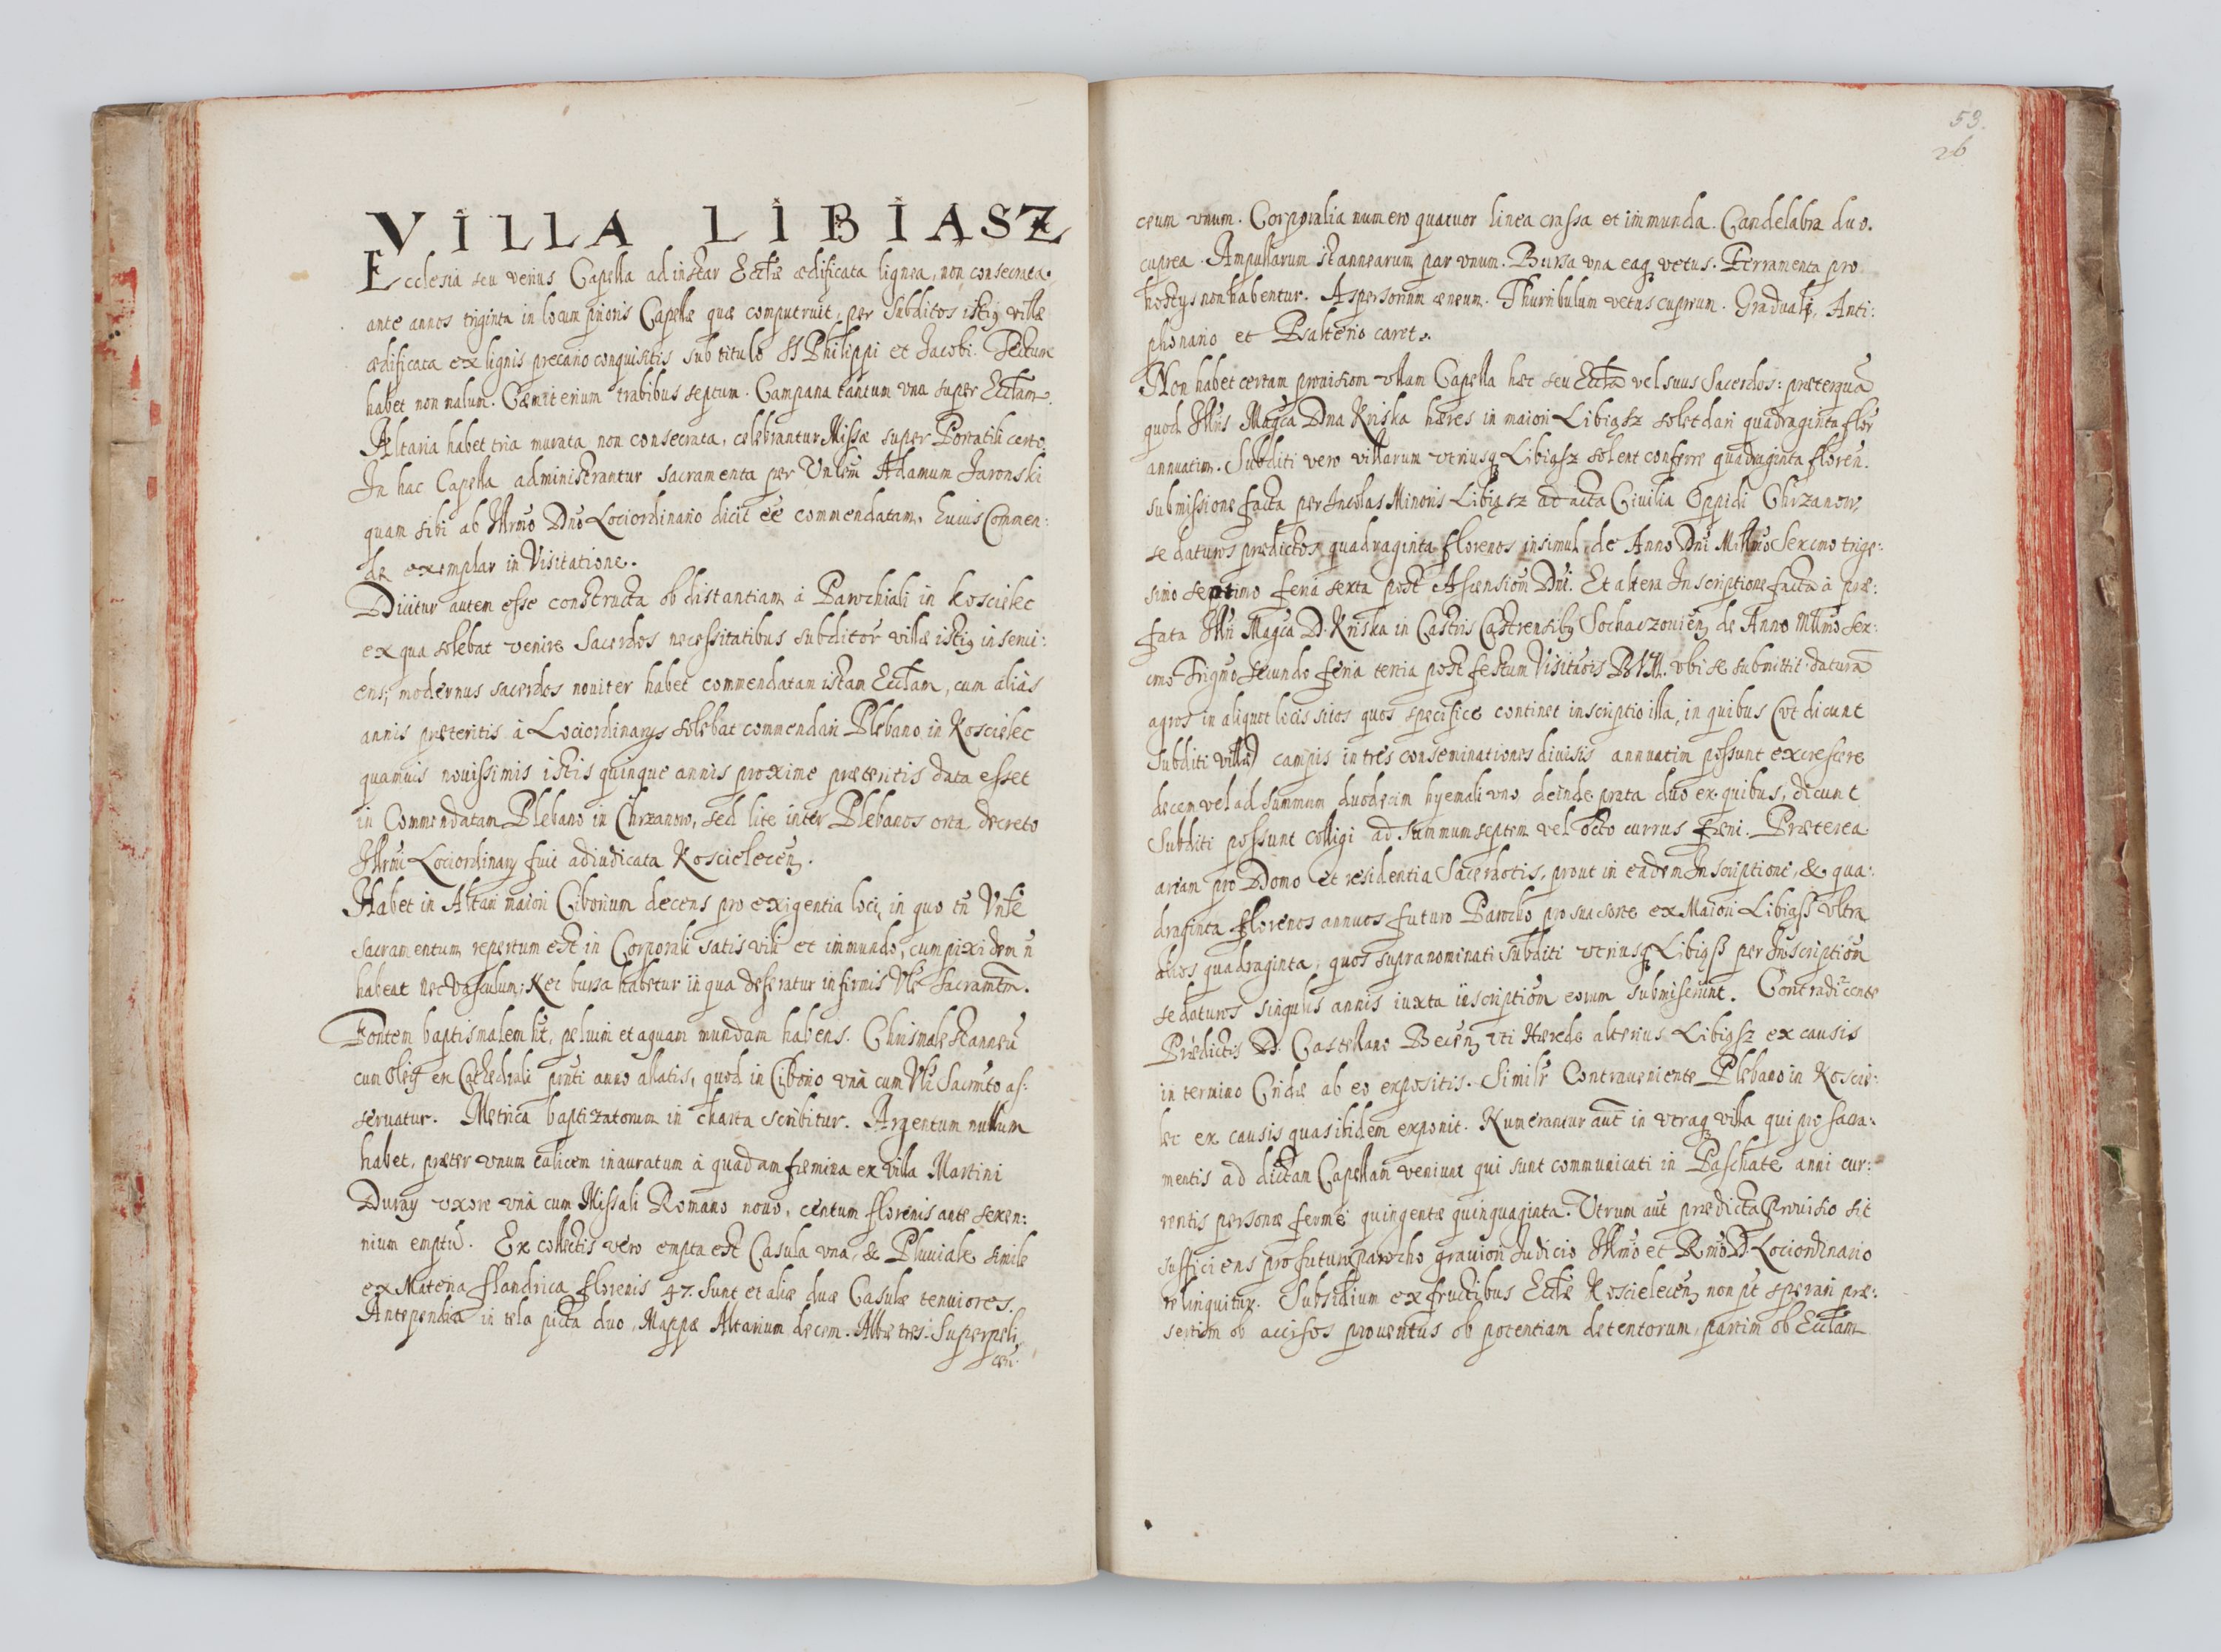 VILLA LIBIASZ
Ecclesia seu verius Capella ad instar Eccłæ ædificata lignea, non consecrata.
ante annos triginta in locum prioris Capellæ quæ computruit, per Subditos istiq villæ
ædificata ex lignis precario conquisitis sub titulo SS Philippi et Jacobi. Tectum
habet non malum. Cæmiterium trabibus septum. Campana tantum vna super Eccłam.
Altaria habet tria murata non consecrata, celebrantur Missæ super Portatili certo.
In hac Capella administrantur sacramenta per Vnlem̃ Adamum Jaronski
quam sibi ab Illrmo Dno Lociordinario dicit eẽ commendatam, huius Commen:
dæ exemplar in Visitatione.
Dicitur autem esse constructa ob distantiam à Parochiali in Koscielec
ex qua solebat venire Sacerdos necessitatibus subditor̃ villæ istiq inserui:
ens, modernus sacerdos noniter habet commendatam istam Eccłam, cum aliàs
annis præteritis à Lociordinarys solebat commendari Plebano in Koscielec
quamuis nouissimis istis quinque annis proxime præteritis data esset
in Commendatam Plebano in Chrzanow, sed lite inter Plebanos orta decreto
Illrmi Lociordinary fuit adiudicata Koscielecen̄.
Habet in Altari maiori Ciborium decens pro exigentia loci, in quo tñ Vnłe
sacramentum repertum est in Corporali satis vili et immundo, cum pixidem ñ
habeat nec vasculum, Nec bursa habetur in qua deferatur infirmis Vłe Sacramtm̃.
Fontem baptismalem ht̃, peluim et aquam mundam habens. Chrismale stanneũ
cum oleis ex Cathedrali pnti anno allatis, quod in Ciborio vnà cum Vłi Sacrmto as:
seruatur. Metrica baptizatorum in charta scribitur. Argentum nullum
habet, præter vnum calicem inauratum à quadam fæmina ex villa Martini
Duray vxore vnà cum Missali Romano nouo, centum florenis ante sexen:
nium emptũ. Ex collectis vero empta est Casula vna, & Pluuiale simile
ex Materia flandrica florenis 47. Sunt et aliæ duæ Casulæ tenuiores.
Antependia in tela picta duo, Mappæ Altarium decem. Albæ tres. Superpeli
ceũ.
53.
26
ceum vnum. Corporalia numero quatuor linea crassa et immunda. Candelabra duo.
cuprea. Ampullarum stannearum par vnum. Bursa vna eaq vetus. Ferramenta pro
hostys non habentur. Aspersorium æneum. Thuribulum vetus cuprum. Graduali, Anti:
phonario et Psalterio caret.
Non habet certam prouisionem vllam Capella hæc seu Eccła vel suus Sacerdos: præterquã
quod Illris Magca Dna Kriska hæres in maiori Libiąsz solet dari quadraginta flor̃
annuatim. Subditi vero villarum vtriusq Libiąsz solent conferre quadraginta floren̄.
submissione facta per Incolas Minoris Libiąsz ad acta Ciuilia Oppidi Chrzanow,
se daturos prædictos quadraginta florenos insimul, de Anno Dni Millmo Sexcmo trige:
simo septimo feria sexta post Ascensiom̃ Dni. Et altera Inscriptione facta à præ:
fata Illri Magca D. Kriska in Castris Castrensibq Sochaczouien̄ de Anno Mllmo sex:
cmo Trigmo secundo feria tertia post festum Visitãois BVM. vbi se submittit daturã
agros in aliquot locis sitos quos specifice continet inscriptio illa, in quibus (vt dicunt
subditi villæ) campis in tres conseminationes diuisis annuatim possunt excrescere
decem vel ad summum duodecim hyemali vno, deinde prata duo ex quibus, dicunt
Subditi possunt colligi ad summum septem vel octo currus fæni. Præterea
aream pro Domo et residentia Sacerdotis, prout in eadem Inscriptione, & qua:
draginta florenos annuos futuro Parocho pro sua sorte ex Maiori Libiąsz vltra
alios quadraginta, quos supranominati subditi vtriusq Libiąß per Inscriptiom̃
se daturos singulis annis iuxta inscriptiom̃ eorum submiserunt. Contradicente
Prædictis D. Castellano Becen̄ vti Hærede alterius Libiąsz ex causis
in termino Cridæ ab eo expositis. Similr̃ Contraueniente Plebano in Koscie:
lec ex causis quas ibidem exponit. Numerantur aũt in vtraq villa qui pro sacra:
mentis ad dictam Capellam veniunt qui sunt communicati in Paschate anni cur:
rentis personæ fermè quingentæ quinquaginta. Vtrum aũt prædicta Prouisio sit
sufficiens pro futuro parocho grauiori Judicio Illrmo et Rmo D. Lociordinario
relinquitur. Subsidium ex fructibus Eccłæ Koscielecen̄ non pt̃ sperari præ:
sertim ob accisos prouentus ob potentiam detentorum, partim ob Eccłam